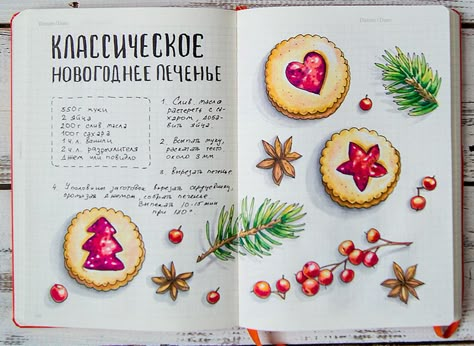 КЛАССИЧЕСКОЕ
НОВОГОДНЕЕ ПЕЧЕНЬЕ
350г муки
2 яйца
200г слив. масла
100г сахара
1 ч.л. ванили
2 ч.л. разрыхлителя
Джем или повидло
1. Слив. масло
растереть с са-
харом, доба-
вить яйца
2. Всыпать муку,
раскатать тесто
около 3 мм
3. Вырезать печенье
4. Половины заготовок вырезать сердцевину,
джемом, собрать печенье
Выпекать 10-15 мин
при 180°